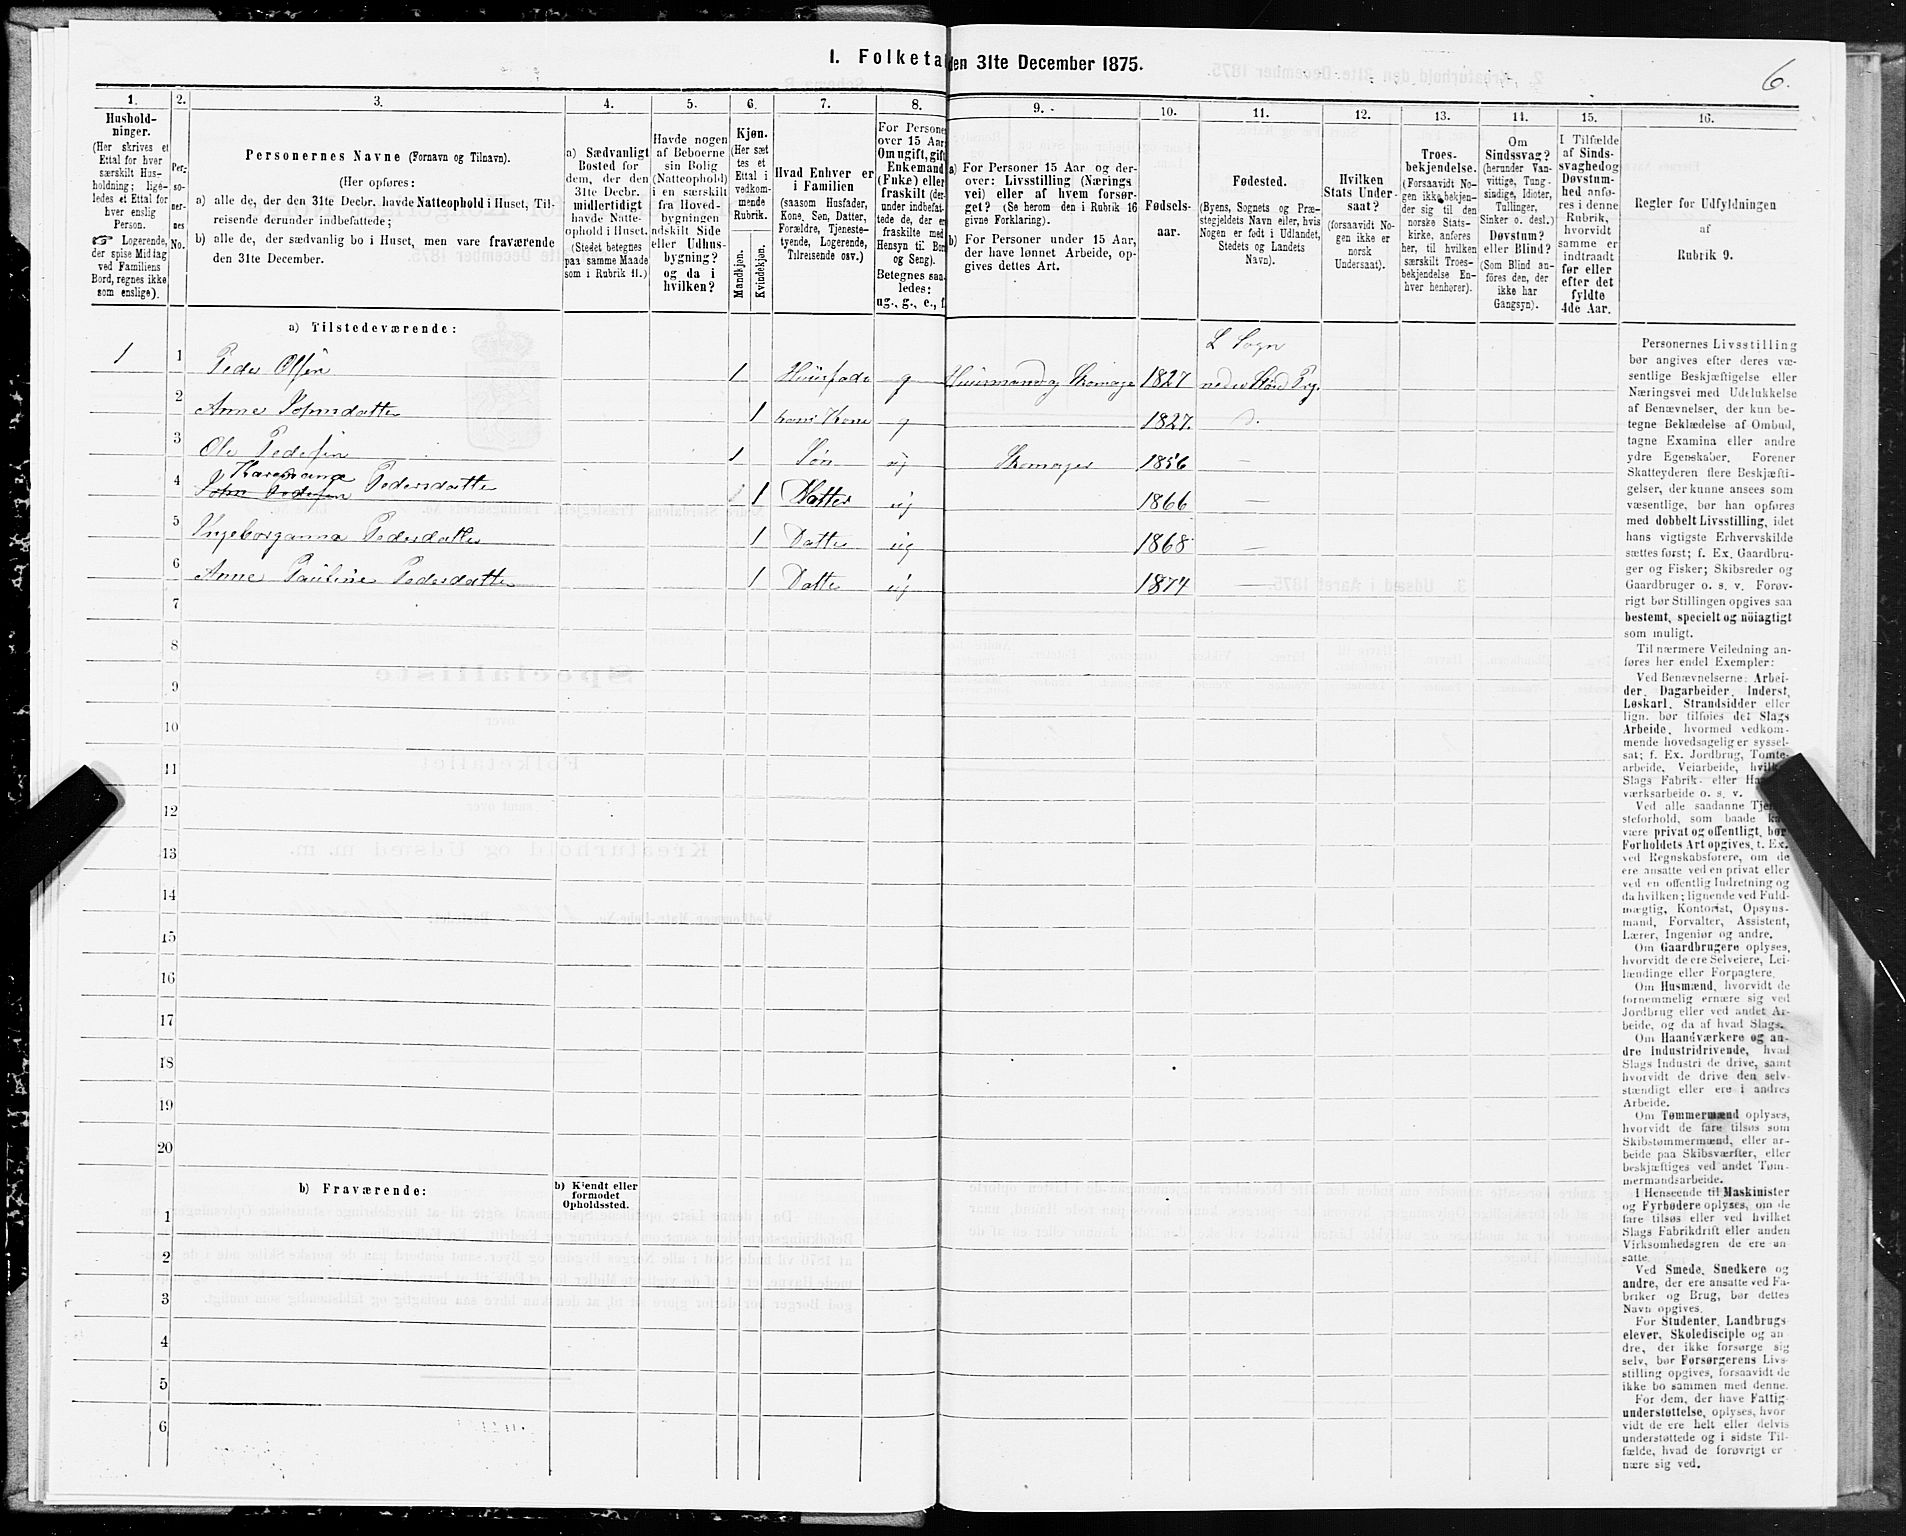 I. Folketal den 31te December 1875.
6.
1. 2. 3. 4. 5. 6. 7. 8. 9. 10. 11. 12. 13. 14. 15. 16.
Hushold-
ninger.
(Her skrives et
Ettal for hver
særskilt Hus-
holdning; lige-
ledes et Ettal for
hver enslig
Person.
Logerende,
der spise Middag
ved Familiens
Bord, regnes ikke
som enslige).
Per-
so-
ner-
nes
No.
Personernes Navne (Fornavn og Tilnavn).
(Her opføres:
a) alle de, der den 31te Decbr. havde Natteophold i Huset, Til-
reisende derunder indbefattede;
b) alle de, der sædvanlig bo i Huset, men vare fraværende
den 31te December.
a) Sædvanligt
Bosted for
dem, der den
31te Decbr.
midlertidigt
havde Natte-
ophold i Huset.
(Stedet betegnes
paa samme Maade
som i Rubrik 11.)
Havde nogen
af Beboerne
sin Bolig
(Natteophold)
i en særskilt
fra Hoved-
bygningen
adskilt Side
eller Udhus-
bygning?
og da i
hvilken?
Kjøn.
(Her sæt
tes et
Ettal i
vedkom-
mende
Rubrik.
Mandkjøn.
Kvindekjøn.
Hvad Enhver er
i Familien
(saasom Husfader,
Kone, Søn, Datter,
Forældre, Tjeneste-
tyende, Logerende,
Tilreisende osv.)
For Persone
over 15 Aar
Om ugift, gift
Enkemand
(Enke) eller
fraskilt (der-
under indbefat-
tede de, der er
fraskilte med
Hensyn til Bor
og Seng).
Betegnes saa-
ledes:
ug., g., e., f.
a) For Personer 15 Aar og der-
over: Livsstilling (Nærings
vei) eller af hvem forsør-
get? (Se herom den i Rubrik 16
givne Forklaring).
b) For Personer under 15 Aar,
der have lønnet Arbeide, op-
gives dettes Art.
Fødsels-
aar.
Fødested.
(Byens, Sognets og Præ-
stegjeldets Navn eller, hvis
Nogen er født i Udlandet,
Stedets og Landets
Navn).
Hvilken
Stats Under-
saat?
(forsaavidt No-
gen ikke er
norsk
Undersaat).
Troes-
bekjendelse.
(Forsaavidt No-
gen ikke bekjen-
der sig til den
norske Stats-
kirke, anføres
her, til hvilken
særskilt Troes-
bekjendelse En-
hver henhører).
Om
Sindssvag?
(herunder Van-
vittige, Tung-
sindige, Idioter,
Tullinger,
Sinker o. desl.)
Døvstum?
eller Blind?
(Som Blind an-
føres den, der
ikke har
Gangsyn).
I Tilfælde
af Sinds-
svaghed og
Døvstum-
hed anfø-
res i denne
Rubrik,
hvorvidt
samme er
indtraadt
før eller
efter det
fyldte
4de Aar.
Regler for Udfyldningen
af
Rubrik 9.
a) Tilstedeværende:
L Sogn
1 1 Peder Olsen 1 Huusfade g Huusmand og Skomager 1827 nedre Stød Prg.
2 Anne Johnsdatte 1 hans Kone g 1827. D.
3 Ole Pedersen 1 Søn ug Skomager 1856 —
Karenanna
4 John Pedersen Pedersdatte 1 Datter ug 1866 —
5 Ingeborganna Pedersdatte 1 Datte ug 1868 —
6 Anne Pauline Pedersdatte 1 Datte ug 1874 —
7
8
9
10
11
12
13
14
15
16
17
18
19
20
b) Fraværende:
b) Kjendt eller
formodet
Opholdssted.
1
2
3
4
5
6
Personernes Livsstilling
bør angives efter deres væ-
sentlige Beskjæftigelse eller
Næringsvei med Udelukkelse
af Benævnelser, der kun be-
tegne Beklædelse af Ombud,
tagne Examina eller andre
ydre Egenskaber. Forener
Skatteyderen flere Beskjæfti-
gelser, der kunne ansees som
væsentlige, bør han opføres
med dobbelt Livsstilling, idet
hans vigtigste Erhvervskilde
sættes først; f. Ex. Gaardbru-
ger og Fisker; Skibsreder og
Gaardbruger o. s. v. Forøv-
rigt bør Stillingen opgives saa
bestemt, specielt og nöiagtigt
som muligt.
Til nærmere Veiledning an-
føres her endel Exempler:
Ved Benævnelserne: Arbei-
der, Dagarbeider, Inderst,
Løskarl, Strandsidder eller
lign. bør tilføies det Slags
Arbeide, hvormed vedkom-
mende hovedsagelig er syssel-
sat; f. Ex. Jordbrug, Tomte-
arbeide, Veiarbeide, hvilke
Slags Fabrik- eller Ha
værksarbeide o. s. v.
Ved alle saadanne Tje
steforhold, som baade k
være privat og offentligt, bør
Forholdets Art opgives, t. Ex.
ved Regnskabsførere, om de
ere ansatte ved en privat eller
ved en offentlig Indretning og
da hvilken; lignende ved Fuld-
mægtig, Kontorist, Opsyns-
mand, Forvalter, Assistent,
Lærer, Ingeniør og andre.
Om Gaardbrugere oplyses,
hvorvidt de ere Selveiere, Lei-
lændinge eller Forpagtere.
Om Husmænd, hvorvidt de
fornemmelig ernære sig ved
Jordbrug eller ved andet Ar-
beide, og da af hvad Slags.
Om Haandværkere og an-
dre Industridrivende, hvad
Slags Industri de drive, samt
hvorvidt de drive den selv-
stændigt eller ere i andres
Arbeide.
Om Tømmermænd oplyses,
hvorvidt de fare tilsøs som
Skibstømmermænd, eller ar-
beide paa Skibsværfter, eller
beskjæftiges ved andet Tøm-
mermandsarbeide.
I Henseende til Maskinister
og Fyrbødere oplyses, om de
fare tilsøs eller ved hvilket
Slags Fabrikdrift eller anden
Virksomhedsgren de ere an-
satte.
Ved Smede, Snedkere og
andre, der ere ansatte ved Fa-
briker og Brug, bør dettes
Navn opgives.
For Studenter, Landbrugs-
elever, Skoledisciple og an-
dre, der ikke forsørge sig
selv, bør Forsørgerens Livs-
stilling opgives, forsaavidt de
ikke bo sammen med denne.
For dem, der have Fattig-
understøttelse, oplyses, hvor
vidt de ere helt eller delvis
understøttede og i sidste Til-
fælde, hvad de forøvrigt er
nære sig ved.